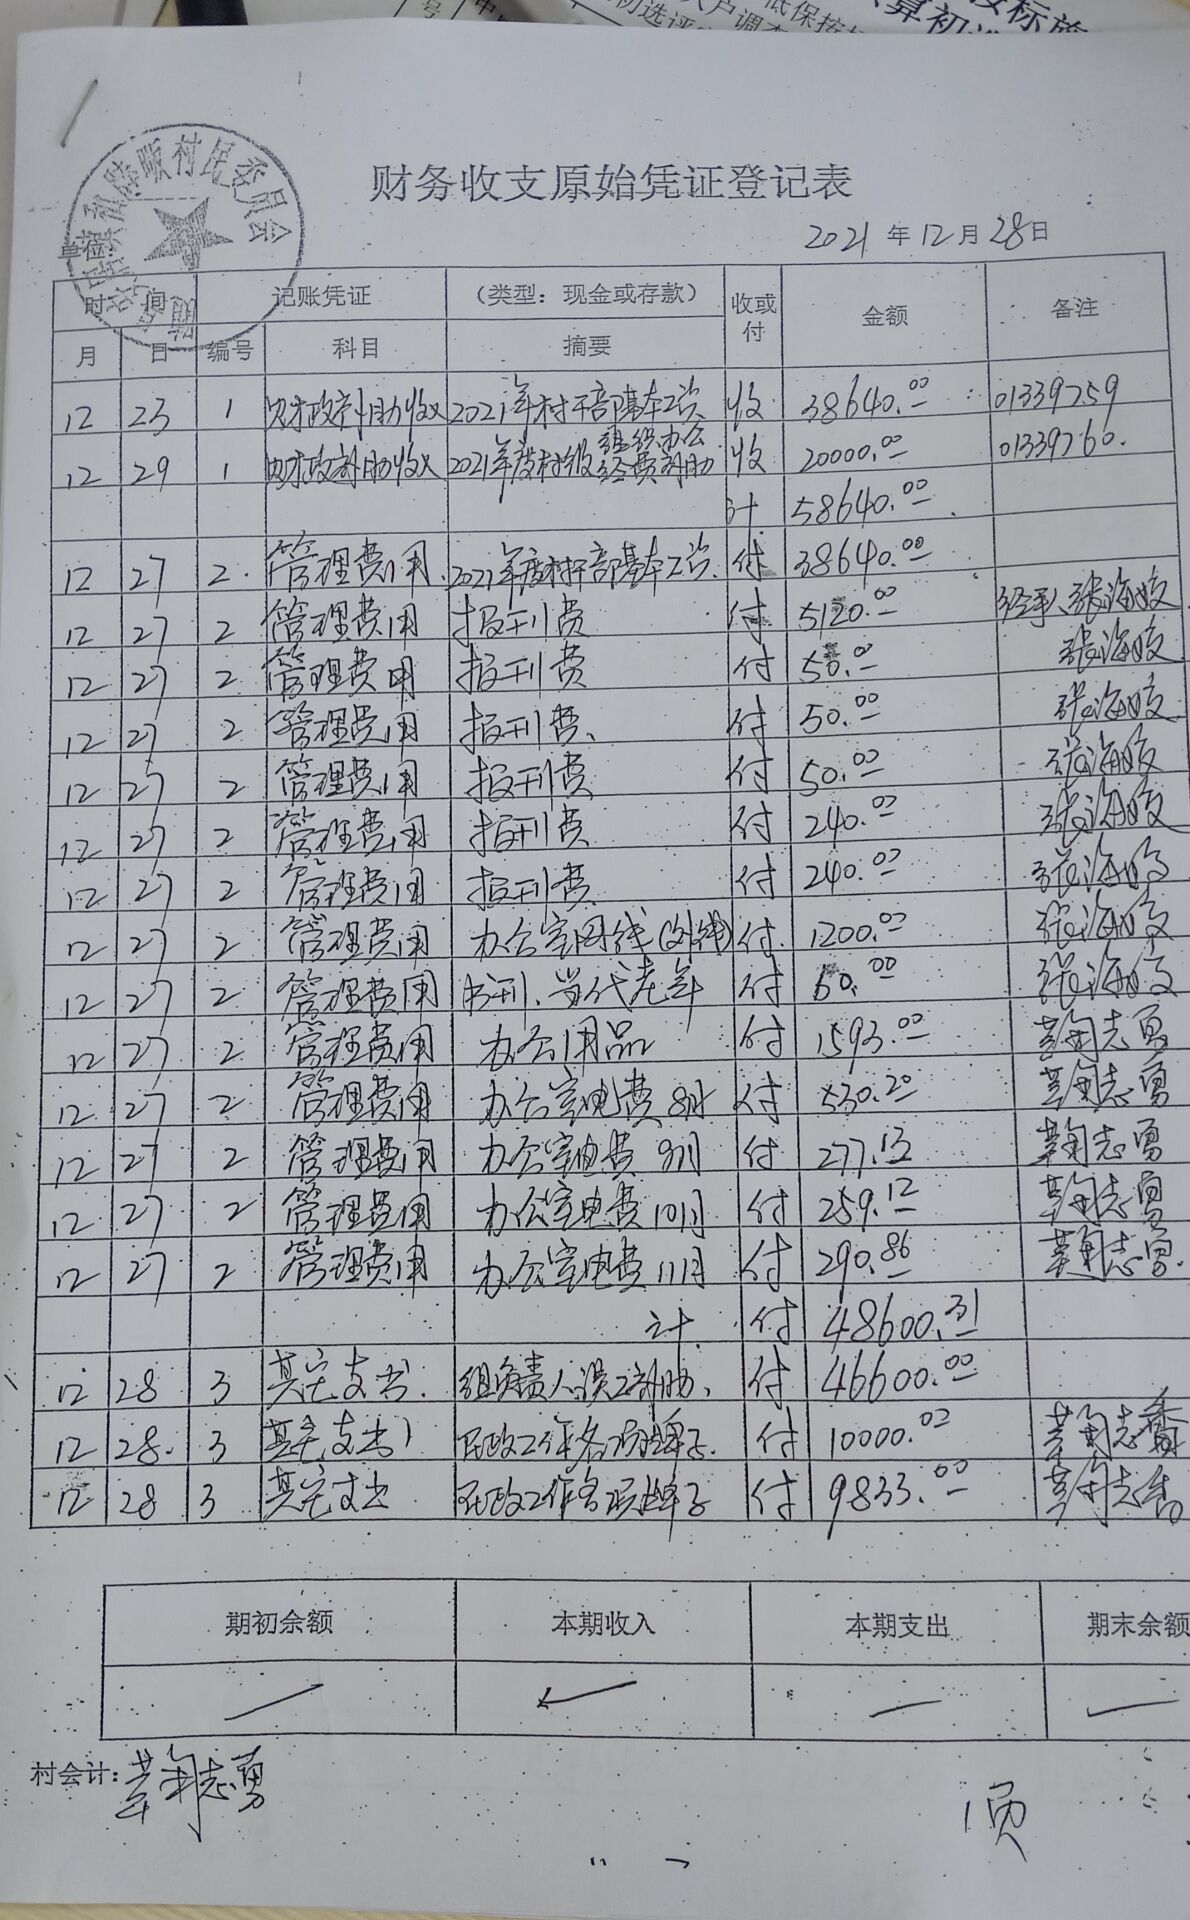 财务收支原始凭证登记表
2021年12月28日
单位:
时间 记账凭证 (类型：现金或存款) 收或付 金额 备注
月 日 编号 科目 摘要
12 23 1 财政补助收入 2021年村干部基本工资 收 38640.00 01339759
12 29 1 财政补助收入 2021年度村级组织办公经费补助 收 20000.00 01339760.
计 58640.00
12 27 2. 管理费用. 2021年度村干部基本工资. 付 38640.00
12 27 2 管理费用 报刊费 付 5120.00 经手人 张海姣
12 27 2 管理费用 报刊费 付 50.00 张海姣
12 27 2 管理费用 报刊费、 付 50.00 张海姣
12 27 2 管理费用 报刊费 付 50.00 张海姣
12 27 2 管理费用 报刊费 付 240.00 张海姣
12 27 2 管理费用 报刊费 付 240.00 张海姣
12 27 2 管理费用 办公室网线(外线) 付 1200.00 张海姣
12 27 2 管理费用 书刊、当代老年 付 60.00 张海姣
12 27 2 管理费用 办公用品 付 1593.00 鞠志勇
12 27 2 管理费用 办公室电费 8月 付 530.20 鞠志勇
12 27 2 管理费用 办公室电费 9月 付 277.13 鞠志勇
12 27 2 管理费用 办公室电费 10月 付 259.12 鞠志勇
12 27 2 管理费用 办公室电费 11月 付 290.86 鞠志勇.
计 付 48600.31
12 28 3 其它支出. 组负责人误工补助、 付 46600.00
12 28. 3 其它支出 民政工作各项牌子. 付 10000.00 鞠志勇
12 28 3 其它支出 民政工作各项牌子 付 9833.00 鞠志勇
期初余额 本期收入 本期支出 期末余额
村会计：鞠志勇
1页